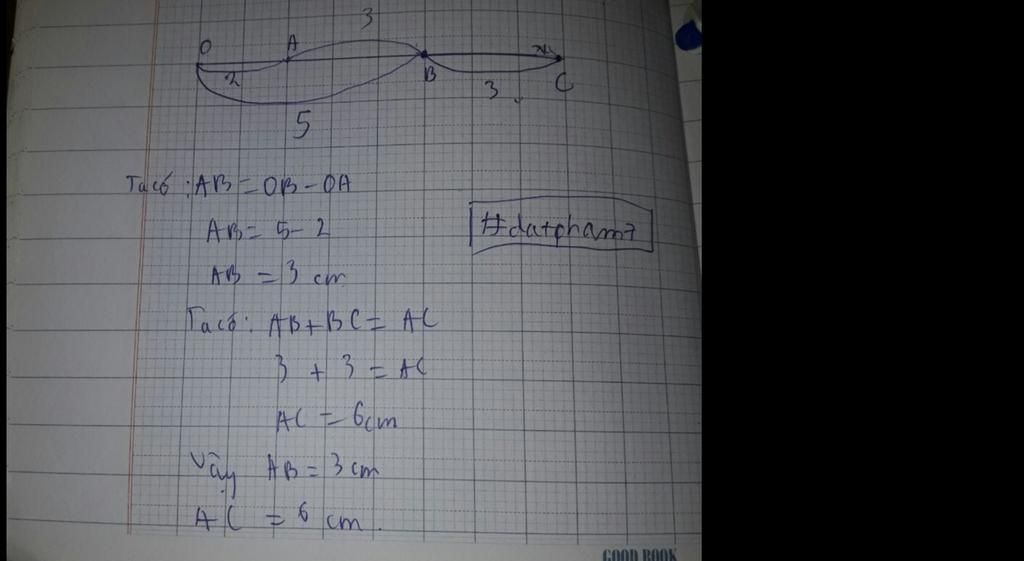 3
O A x
2 B 3 C
5
Ta có: AB = OB - OA
AB = 5 - 2 #datpham7
AB = 3 cm
Ta có: AB + BC = AC
3 + 3 = AC
AC = 6cm
Vậy AB = 3 cm
AC = 6 cm.
GOOD BOOK